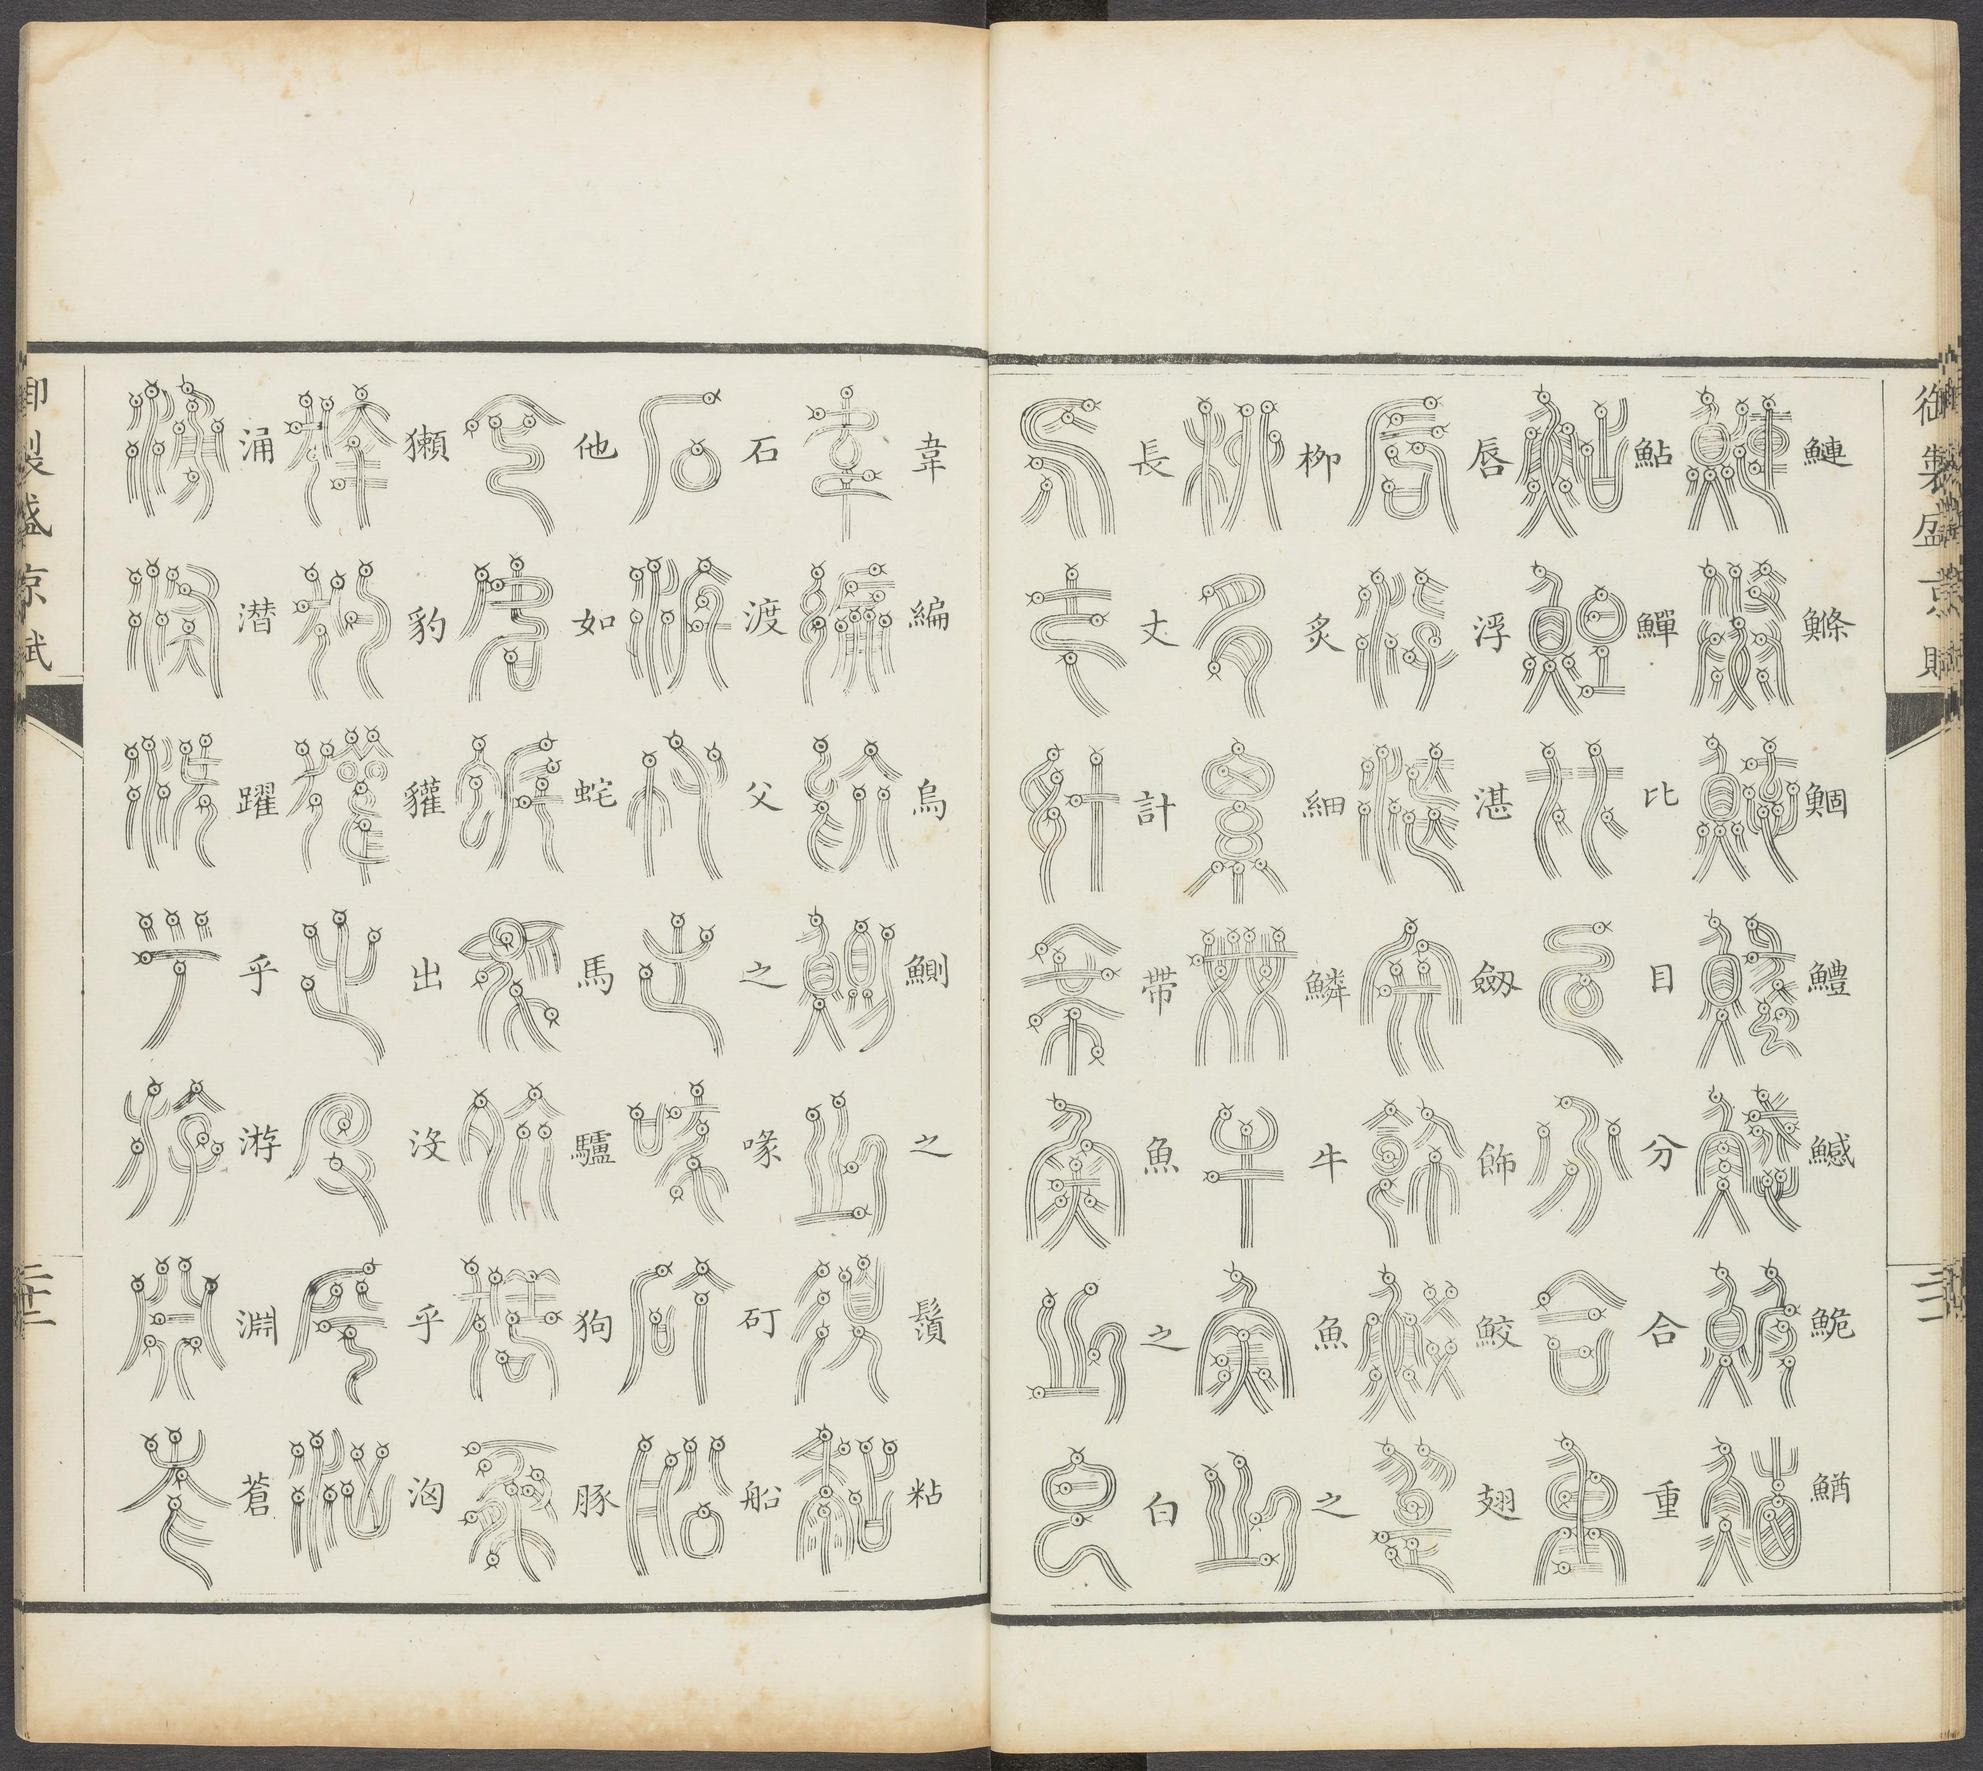 御製盛京賦
鰱鰷鯝鱧鱤鮠鰌
鮎鱓比目分合重
唇浮湛劔飾鮫翅
柳炙細鱗牛魚之
長丈計帶魚之白
韋編烏鰂之鬚粘
石渡父之喙矴船
他如蛇馬驢狗豚
獺豹貛出沒乎洶
涌潜躍乎游淵蒼
御製盛京賦
二十二